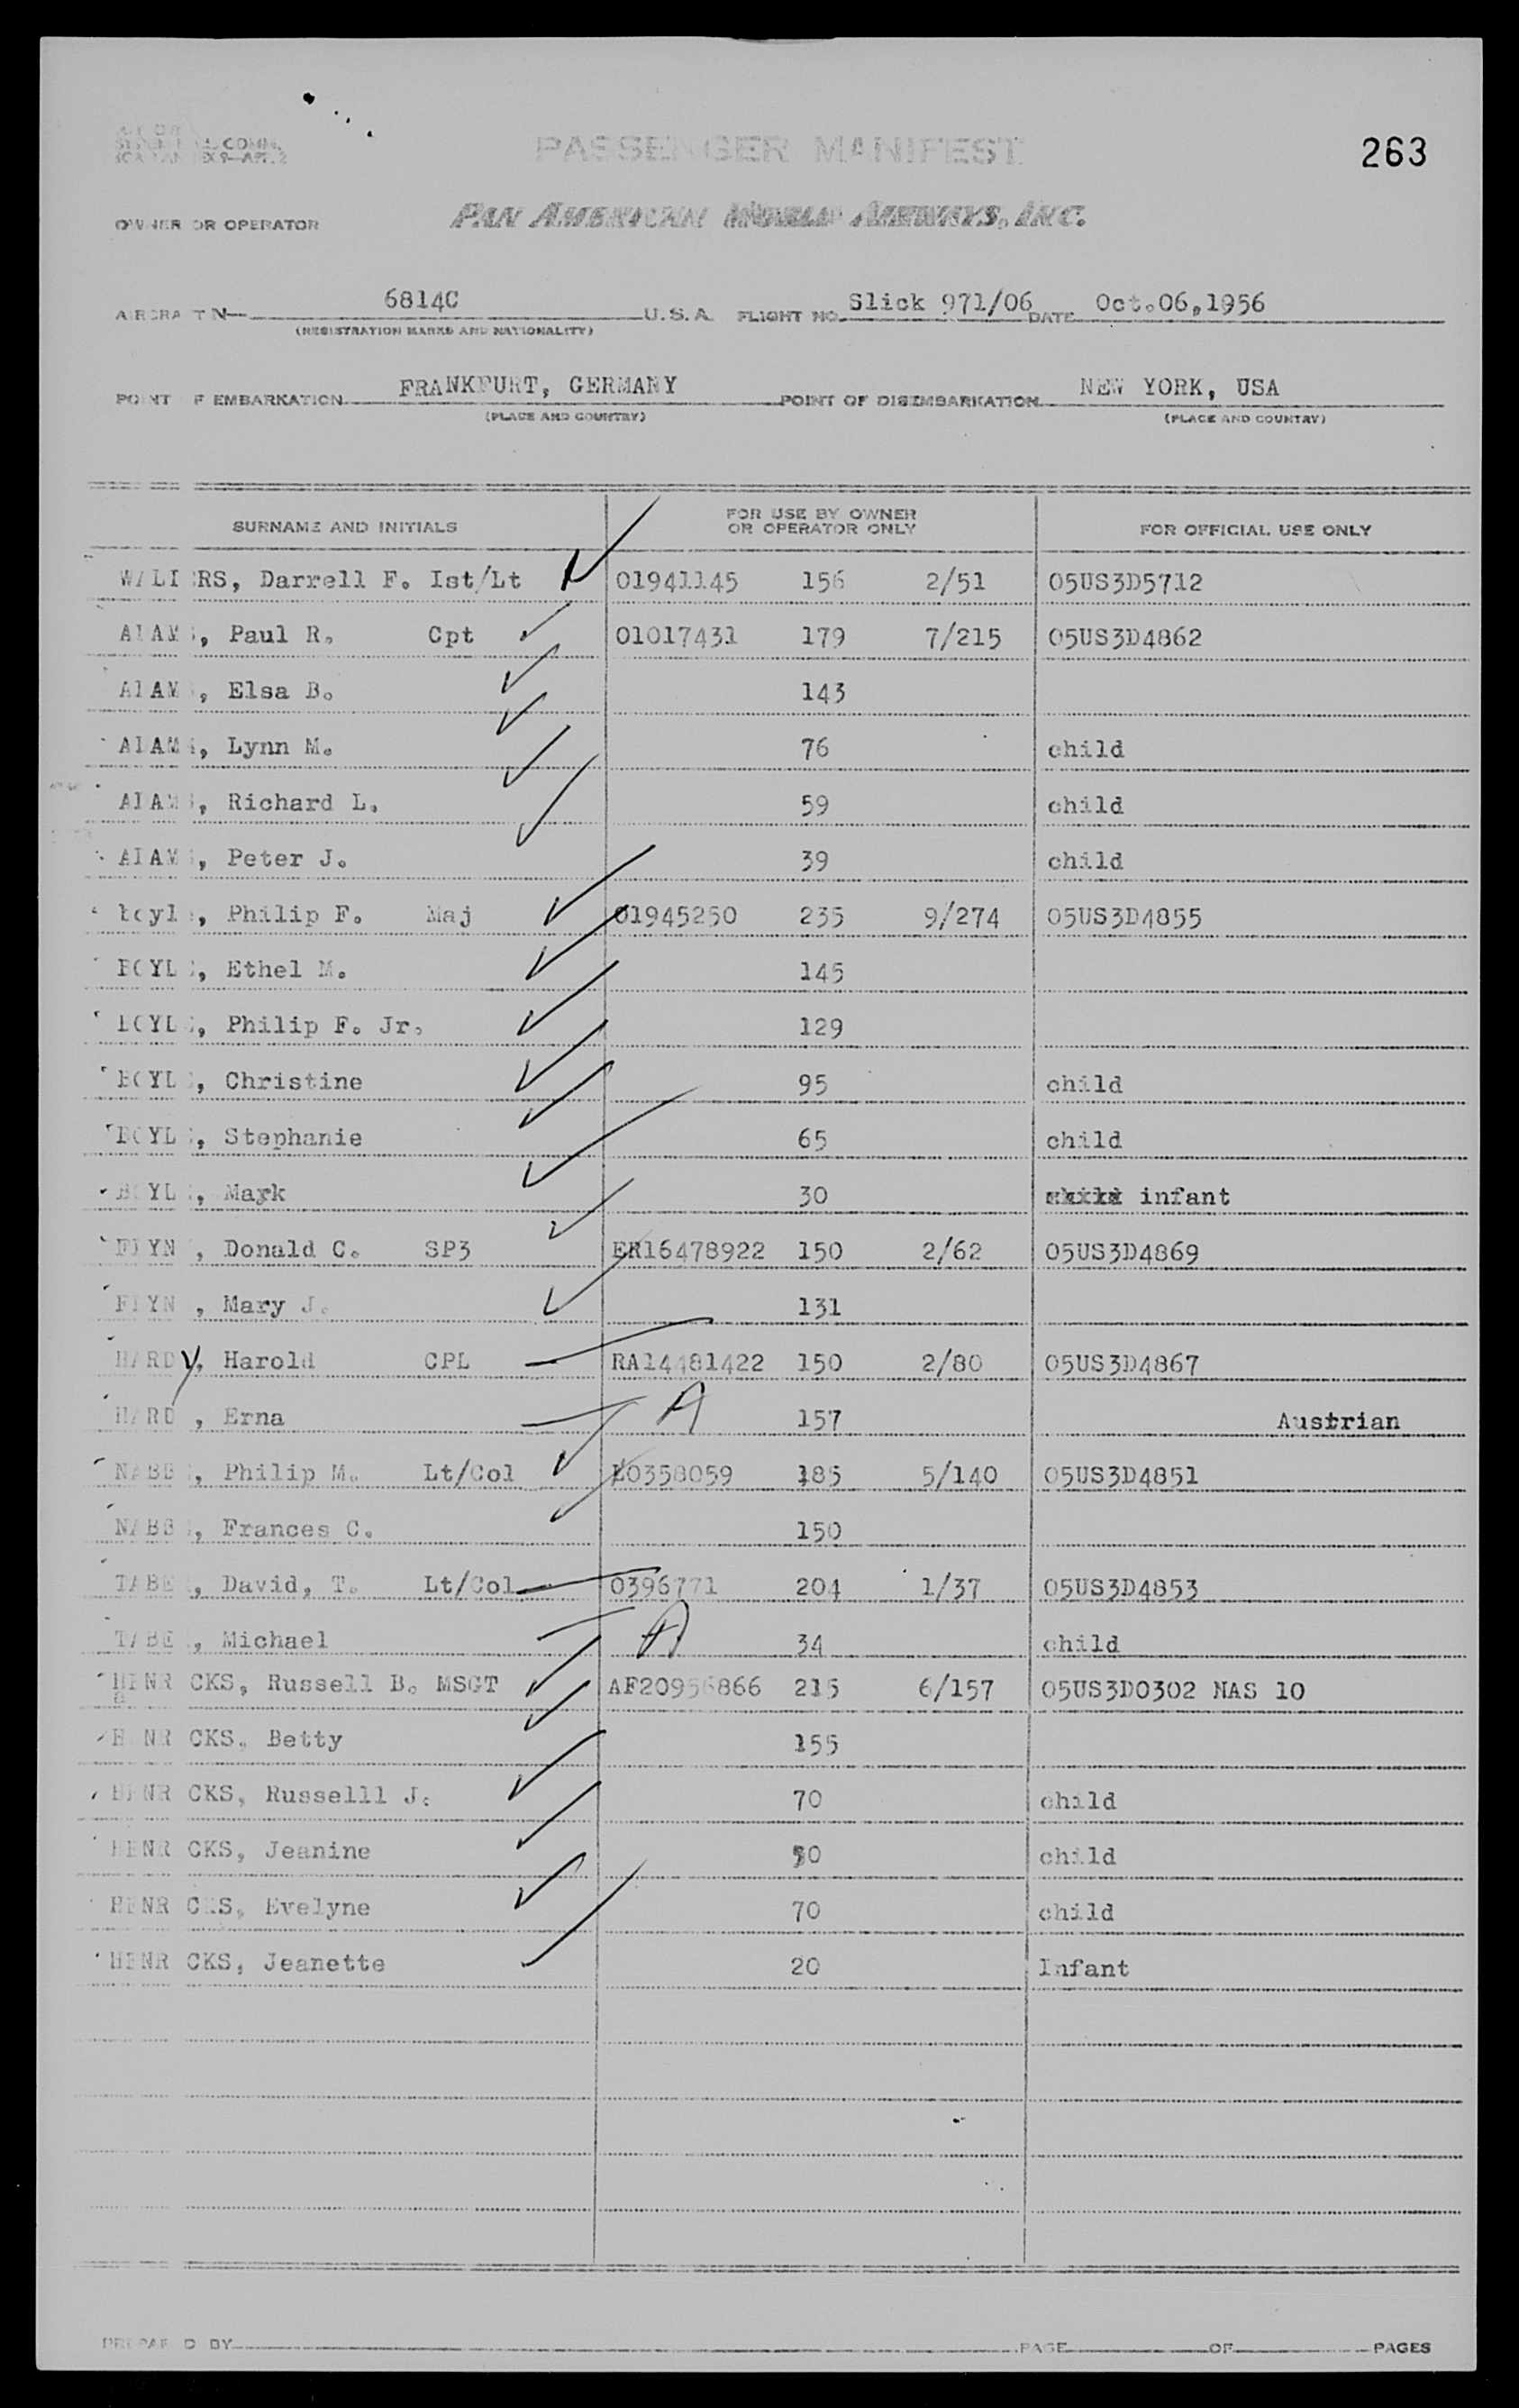 263
PASSENGER MANIFEST
OWNER OR OPERATOR PAN AMERICAN WORLD AIRWAYS, INC.
AIRCRAFT N 6814C U.S.A. FLIGHT NO. Slick 971/06 DATE Oct.06,1956
(REGISTRATION MARKS AND NATIONALITY)
POINT OF EMBARKATION FRANKFURT, GERMANY POINT OF DISEMBARKATION NEW YORK, USA
(PLACE AND COUNTRY) (PLACE AND COUNTRY)
SURNAME AND INITIALS FOR USE BY OWNER OR OPERATOR ONLY FOR OFFICIAL USE ONLY
Darrell F. Ist/Lt 01941145 156 2/51 05US3D5712
ADAMS, Paul R. Cpt 01017431 179 7/215 05US3D4862
ADAMS, Elsa B. 143
ADAMS, Lynn M. 76 child
ADAMS, Richard L. 59 child
ADAMS, Peter J. 39 child
boyle, Philip F. Maj 01945250 235 9/274 05US3D4855
BOYLE, Ethel M. 145
BOYLE, Philip F. Jr. 129
BOYLE, Christine 95 child
BOYLE, Stephanie 65 child
BOYLE, Mark 30 infant
Donald C. SP3 ER16478922 150 2/62 05US3D4869
Mary J. 131
HARDY, Harold CPL RA14481422 150 2/80 05US3D4867
HARD , Erna A 157 Austrian
NABBS, Philip M. Lt/Col 185 5/140 05US3D4851
NABBS, Frances C. 150
David, T. Lt/Col 0396771 204 1/37 05US3D4853
Michael A 34 child
HENRICKS, Russell B. MSGT AF20956866 215 6/157 05US3D0302 NAS 10
HENRICKS, Betty 155
HENRICKS, Russelll J. 70 child
HENRICKS, Jeanine child
HENRICKS, Evelyne 70 child
HENRICKS, Jeanette 20 Infant
PREPARED BY PAGE OF PAGES